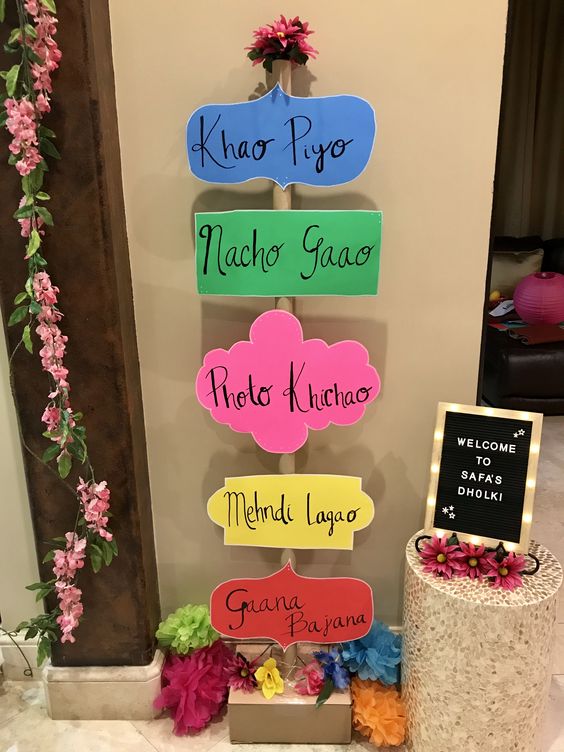 Khao Piyo
Nacho Gaao
Photo Khichao
Mehndi Lagao
Gaana
Bajana
WELCOME
TO
SAFA'S
DHOLKI